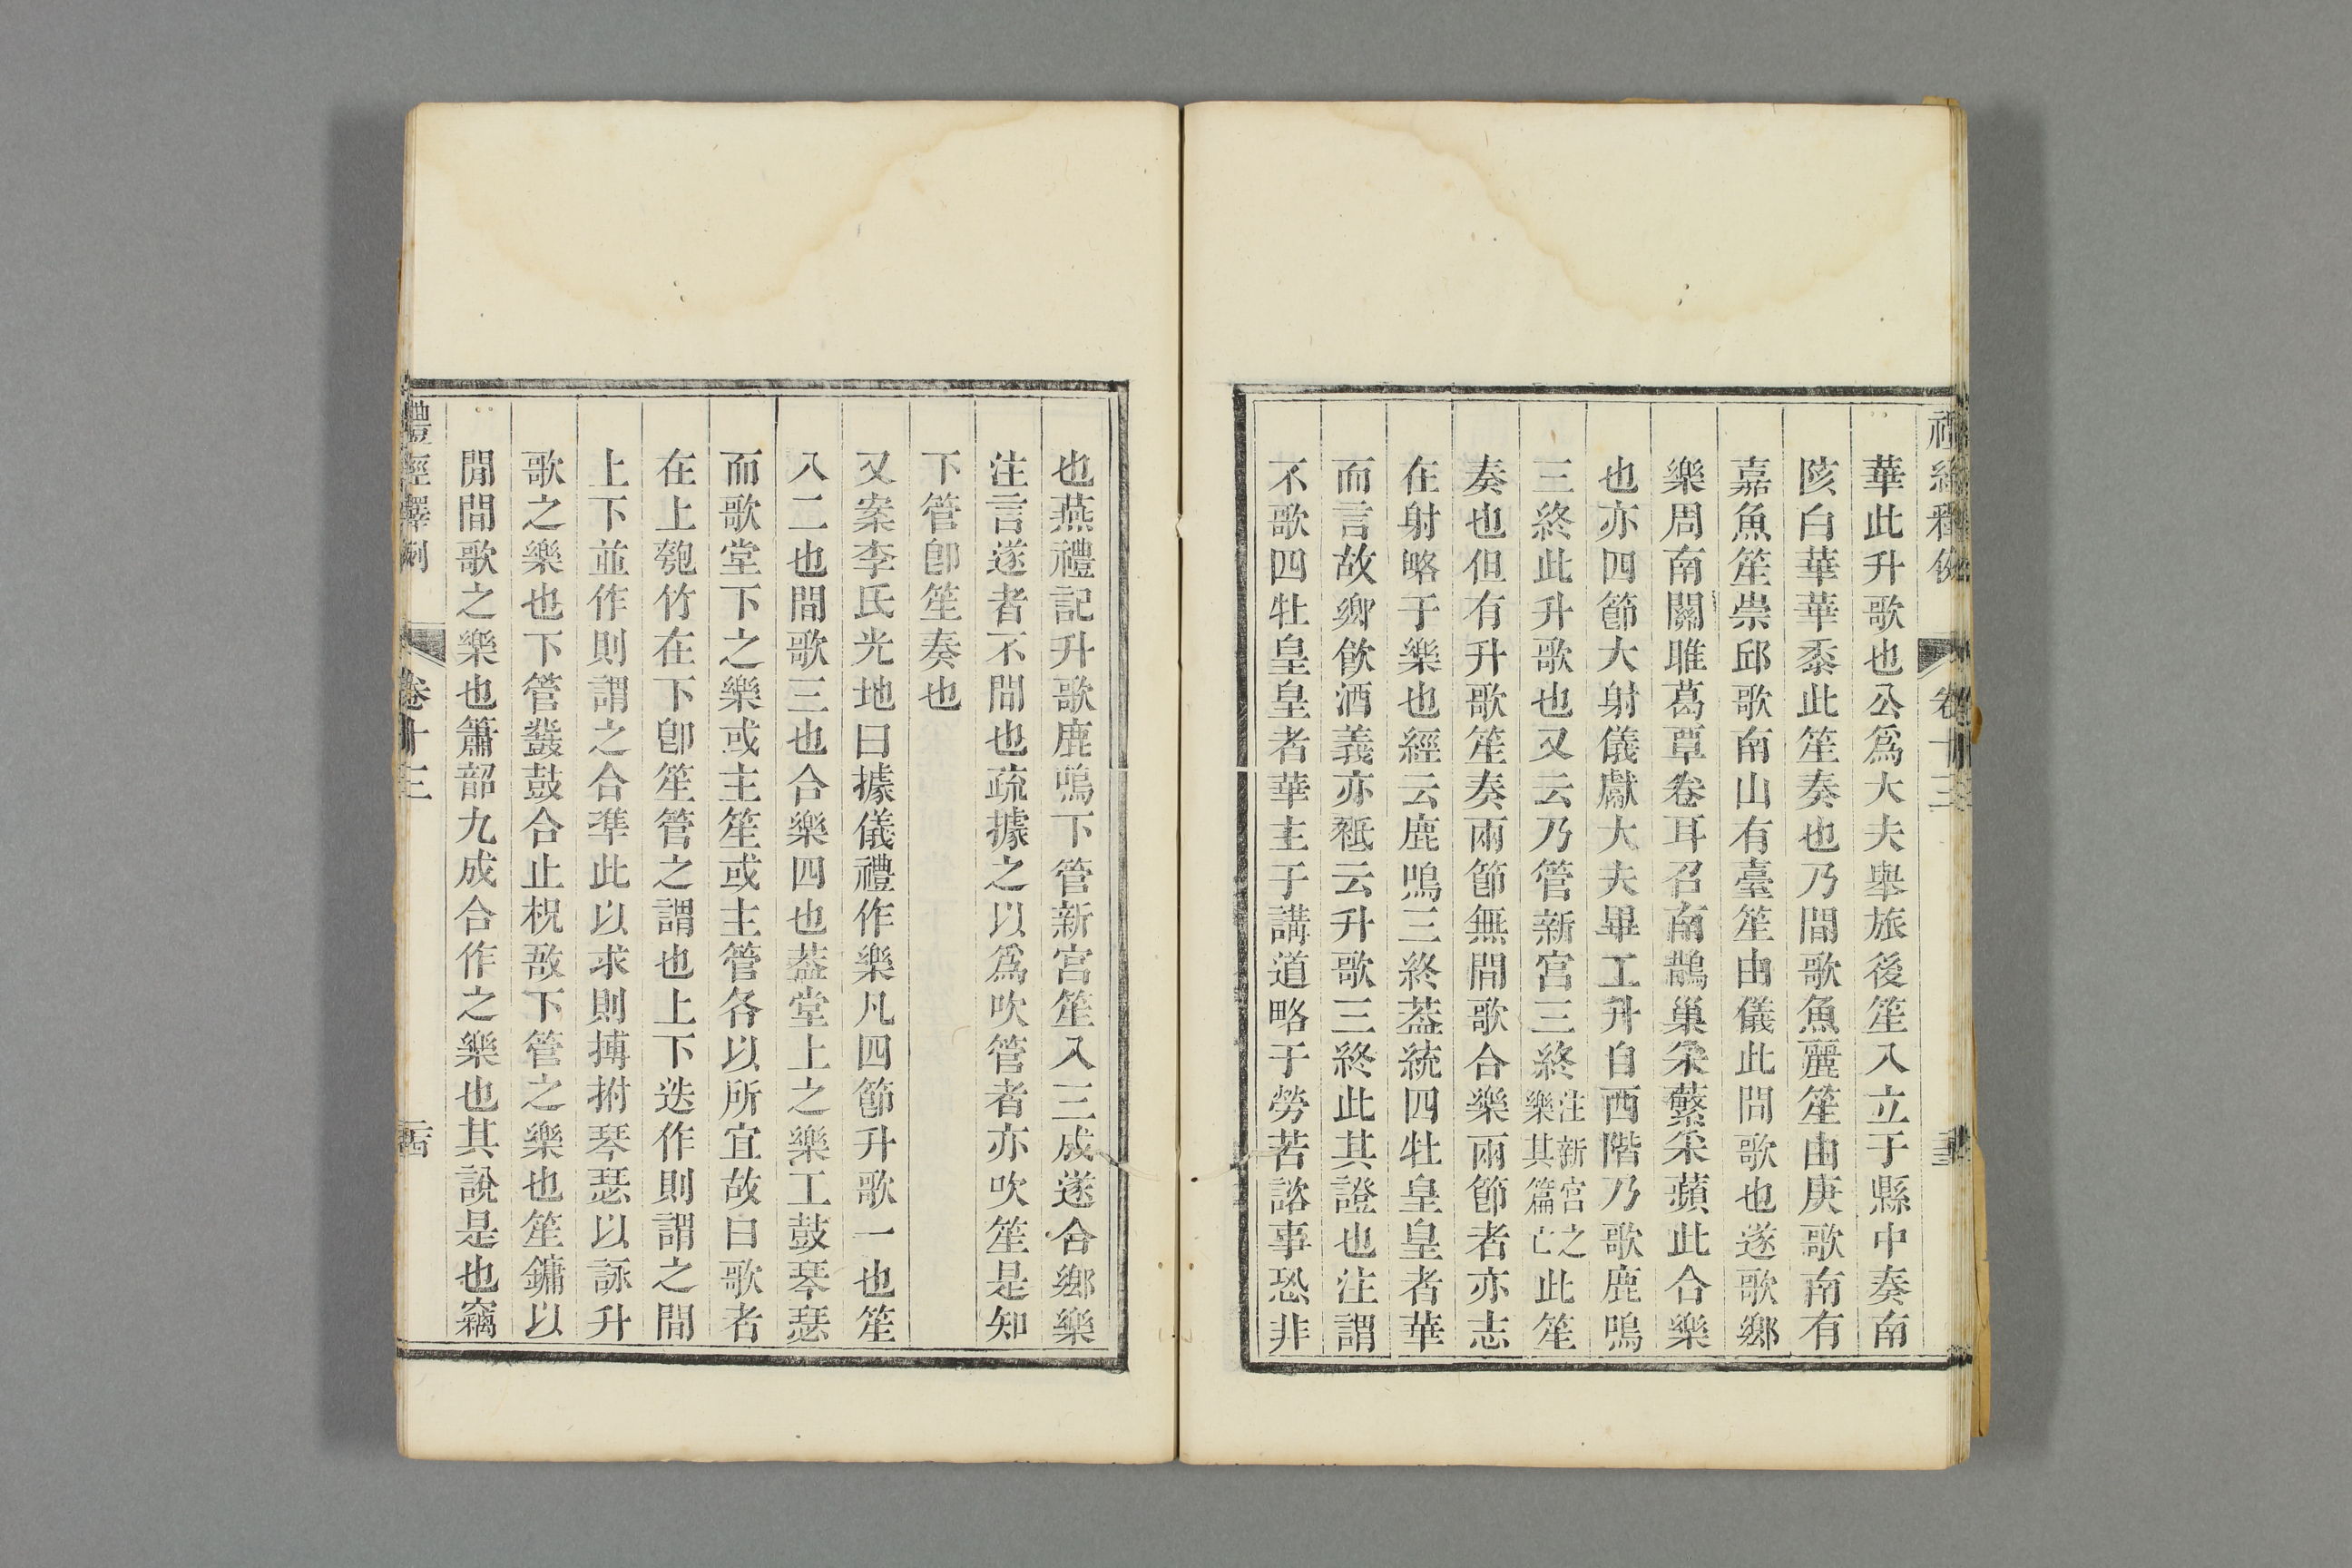 禮經釋例 卷十三
華此升歌也公爲大夫舉旅後笙入立于縣中奏南
陔白華華黍此笙奏也乃間歌魚麗笙由庚歌南有
嘉魚笙崇邱歌南山有臺笙由儀此間歌也遂歌鄉
樂周南關雎葛覃卷耳召南鵲巢采蘩采蘋此合樂
也亦四節大射儀獻大夫畢工升自西階乃歌鹿鳴
三終此升歌也又云乃管新宮三終注新宮之樂其篇亡此笙
奏也但有升歌笙奏兩節無間歌合樂兩節者亦志
在射略于樂也經云鹿鳴三終葢統四牡皇皇者華
而言故鄉飲酒義亦秖云升歌三終此其證也注謂
不歌四牡皇皇者華主于講道略于勞苦諮事恐非
也燕禮記升歌鹿鳴下管新宮笙入三成遂合鄉樂
注言遂者不間也疏據之以爲吹管者亦吹笙是知
下管卽笙奏也
又案李氏光地曰據儀禮作樂凡四節升歌一也笙
入二也間歌三也合樂四也葢堂上之樂工鼓琴瑟
而歌堂下之樂或主笙或主管各以所宜故曰歌者
在上匏竹在下卽笙管之謂也上下迭作則謂之間
上下並作則謂之合準此以求則搏拊琴瑟以詠升
歌之樂也下管鼗鼓合止柷敔下管之樂也笙鏞以
閒間歌之樂也簫韶九成合作之樂也其說是也竊
禮經釋例 卷十三